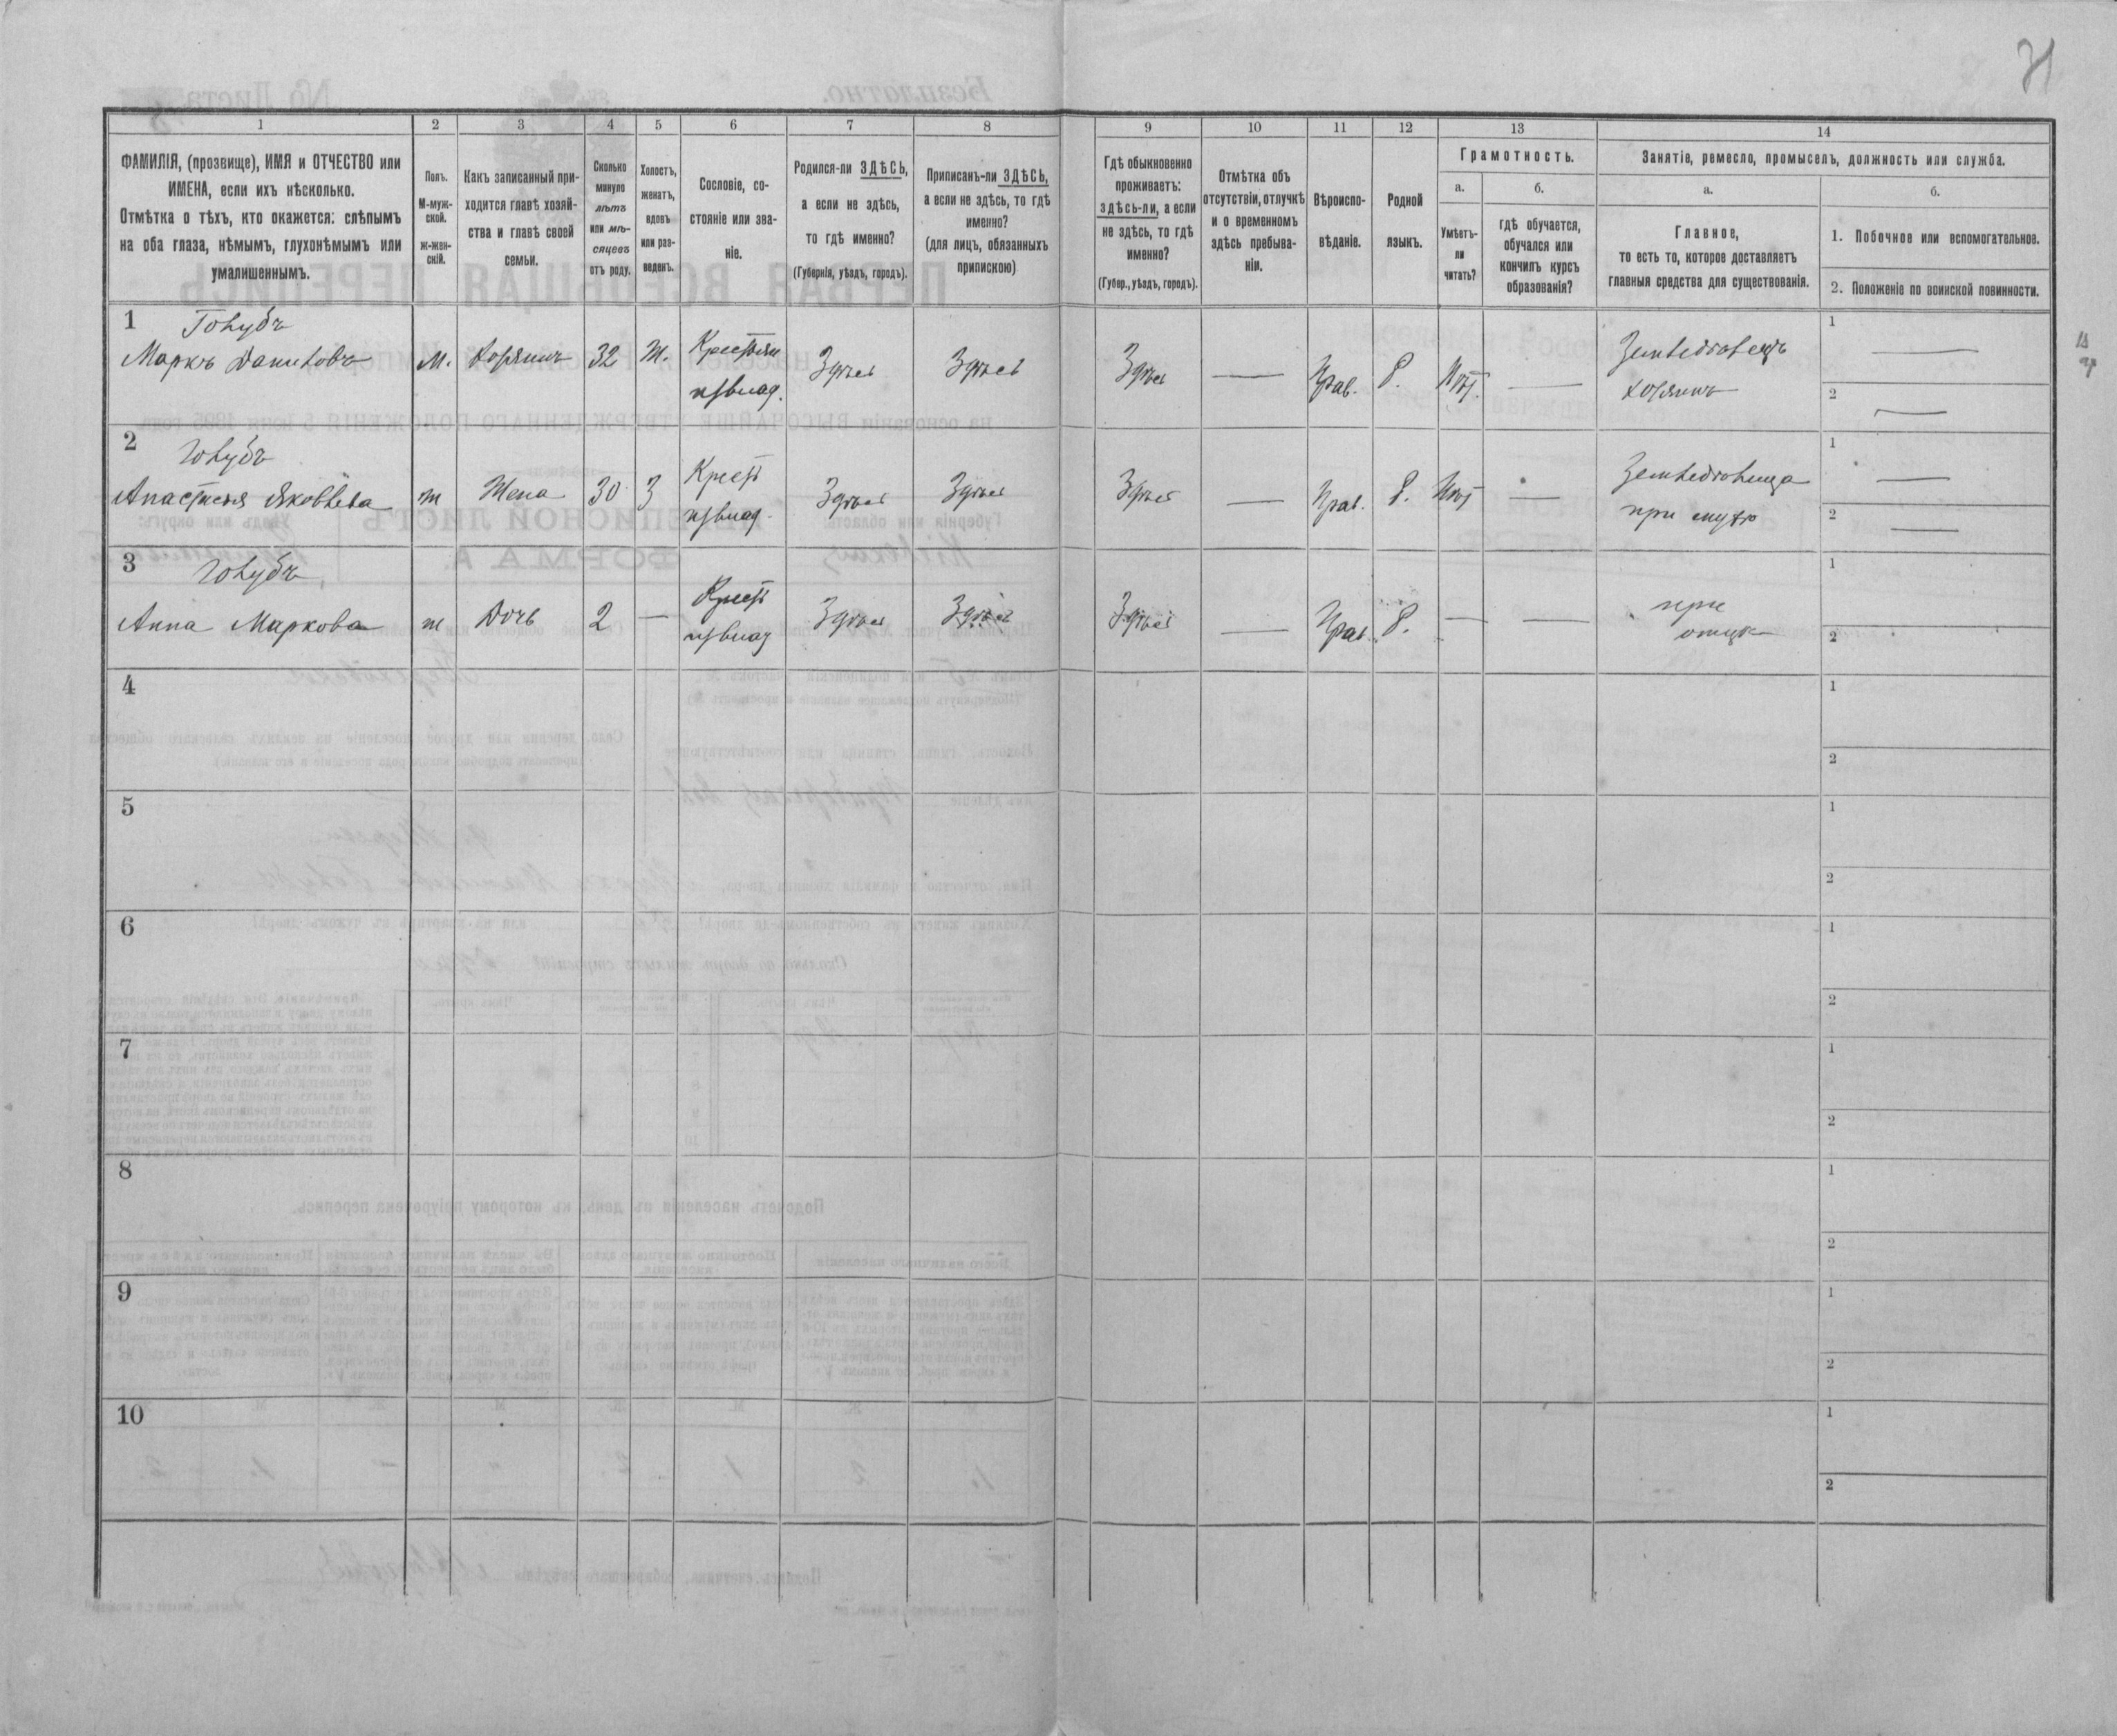 31
1
2
3
4
5
6
7
8
9
10
11
12
13
14
ФАМИЛІЯ, (прозвище), ИМЯ и ОТЧЕСТВО или
ИМЕНА, если ихъ нѣсколько.
Отмѣтка о тѣхъ, кто окажется: слѣпымъ
на оба глаза, нѣмымъ, глухонѣмымъ или
умалишеннымъ.
Полъ.
М-муж-
ской.
ж-жен-
скій.
Какъ записанный при-
ходится главѣ хозяй-
ства и главѣ своей
семьи.
Сколько
минуло
лѣтъ
или мѣ-
сяцевъ
отъ роду.
Холостъ,
женатъ,
вдовъ
или раз-
веденъ.
Сословіе, со-
стояніе или зва-
ніе.
Родился-ли ЗДѢСЬ,
а если не здѣсь,
то гдѣ именно?
(Губернія, уѣздъ, городъ).
Приписанъ-ли ЗДѢСЬ,
а если не здѣсь, то гдѣ
именно?
(для лицъ, обязанныхъ
припискою)
Гдѣ обыкновенно
проживаетъ:
здѣсь-ли, а если
не здѣсь, то гдѣ
именно?
(Губер., уѣздъ, городъ).
Отмѣтка объ
отсутствіи, отлучкѣ
и о временномъ
здѣсь пребыва-
ніи.
Вѣроиспо-
вѣданіе.
Родной
языкъ.
Грамотность.
а.
Умѣетъ-
ли
читать?
б.
гдѣ обучается,
обучался или
кончилъ курсъ
образованія?
Занятіе, ремесло, промыселъ, должность или служба.
а.
Главное,
то есть то, которое доставляетъ
главныя средства для существованія.
б.
1. Побочное или вспомогательное.
2. Положеніе по воинской повинности.
1
Голубъ
Маркъ Даниловъ
М.
Хозяинъ
32
Ж.
Крестьян
изъ влад.
Здѣсь
Здѣсь
Здѣсь
—
Прав.
Р.
Нѣт.
—
Земледѣлецъ
хозяинъ
1
—
2
—
2
Голубъ
Анастасія Яковлева
ж
Жена
30
З
Крест
изъ влад.
Здѣсь
Здѣсь
Здѣсь
—
Прав.
Р.
Нѣт
—
Земледѣлица
при мужѣ
1
—
2
—
3
Голубъ
Анна Маркова
ж
Дочь
2
—
Крест
изъ влад
Здѣсь
Здѣсь
Здѣсь
—
Прав.
Р.
—
—
при
отцѣ
1
2
4
1
2
5
1
2
6
1
2
7
1
2
8
1
2
9
1
2
10
1
2